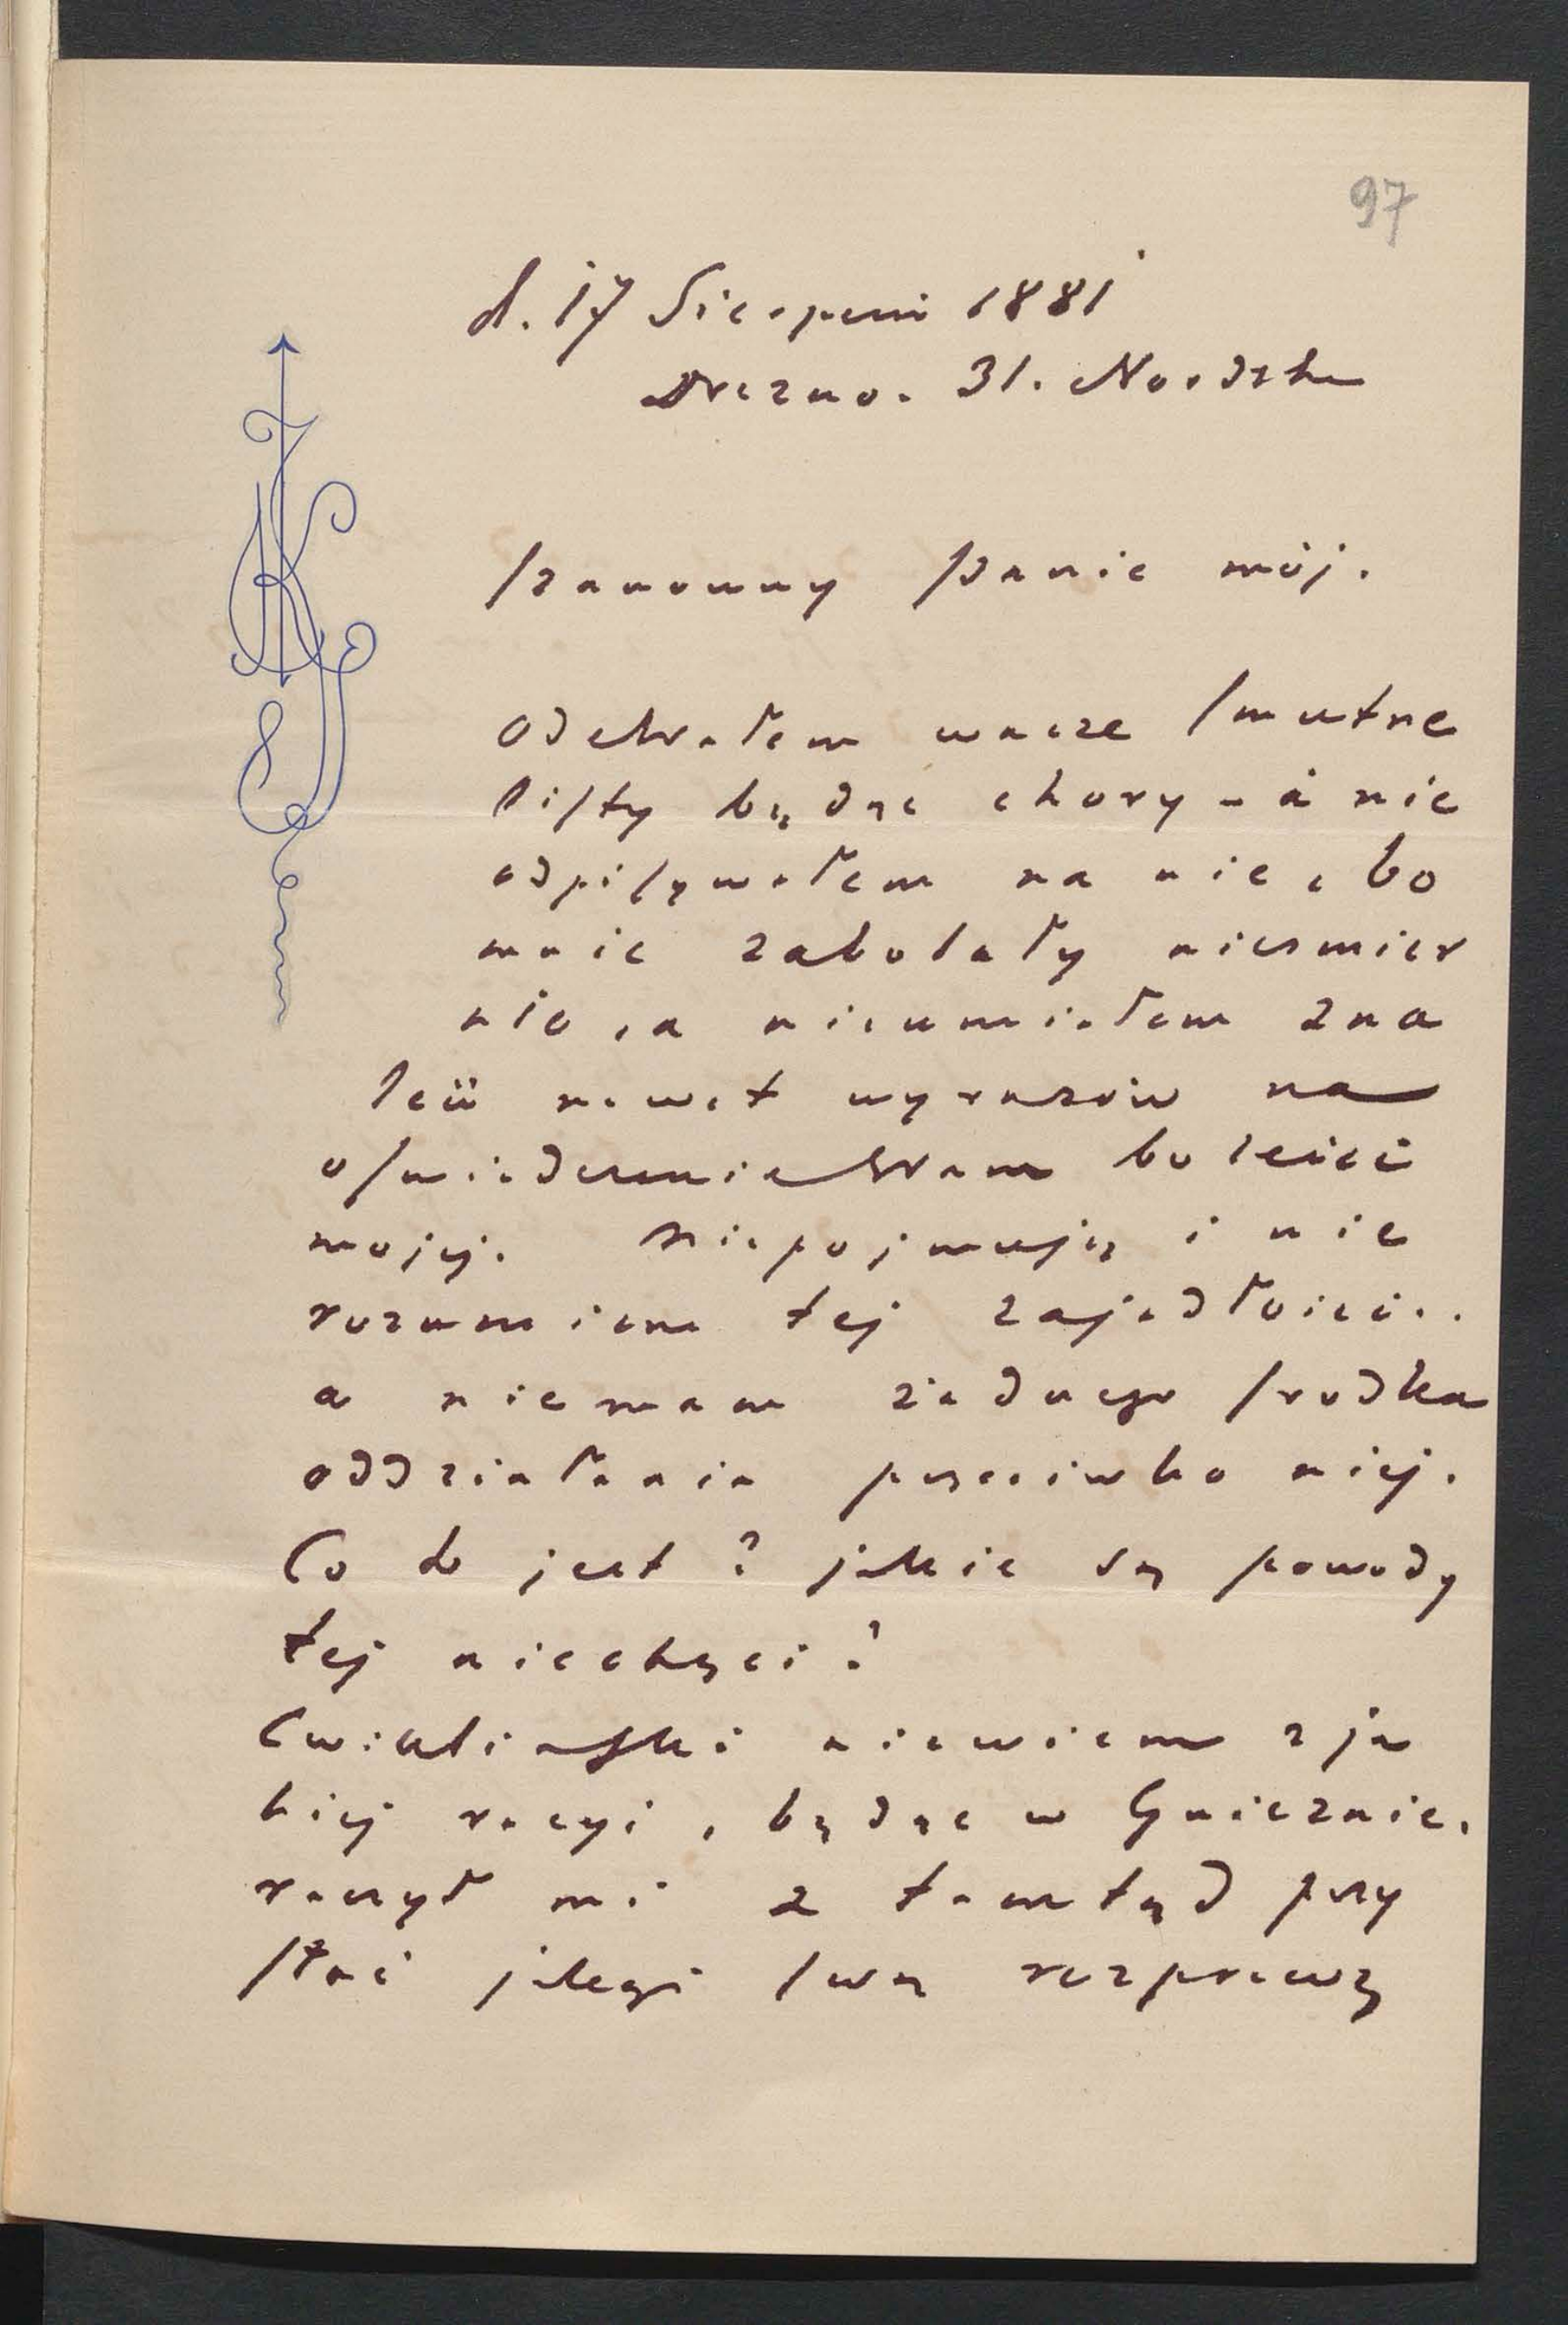 97
d. 17 Sierpnia 1881
Drezno. 31. Nordstr
Szanowny Panie mój.
Odebrałem wasze smutne
listy będąc chory - a nie
odpisywałem na nie, bo
mnie zabolały niesmier
nie, a nieumiałem zna
leść nawet wyrazów na
oświadczenie Wam boleści
mojej. Niepojmuję i nie
rozumiem tej zajadłości..
a niemam żadnego srodka
oddziałania przeciwko niej.
Co to jest? jakie są powody
tej niechęci?
Cwikliński niewiem z ja
kiej racyi, będąc w Gnieznie,
raczył mi z tamtąd przy
słać jakąś swą rozprawę